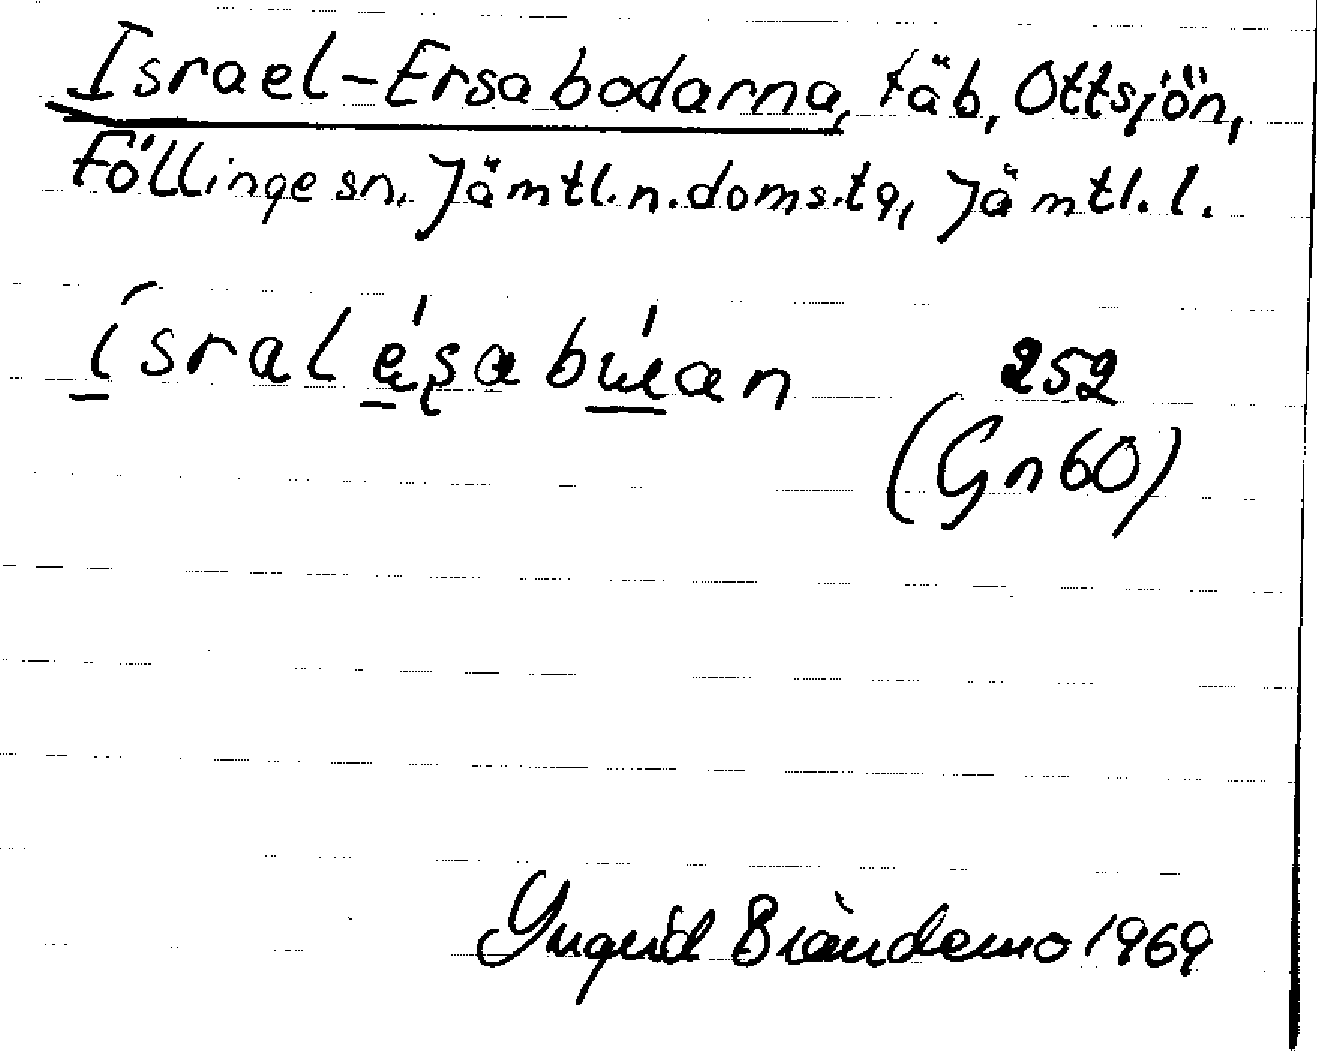 Israel-Ersabodarna, fäb, Ottsjön,
Föllinge sn. Jämtl. n. doms. tg, Jämtl. l.
252
(Gn 60)
Ingrid Brändemo 1969